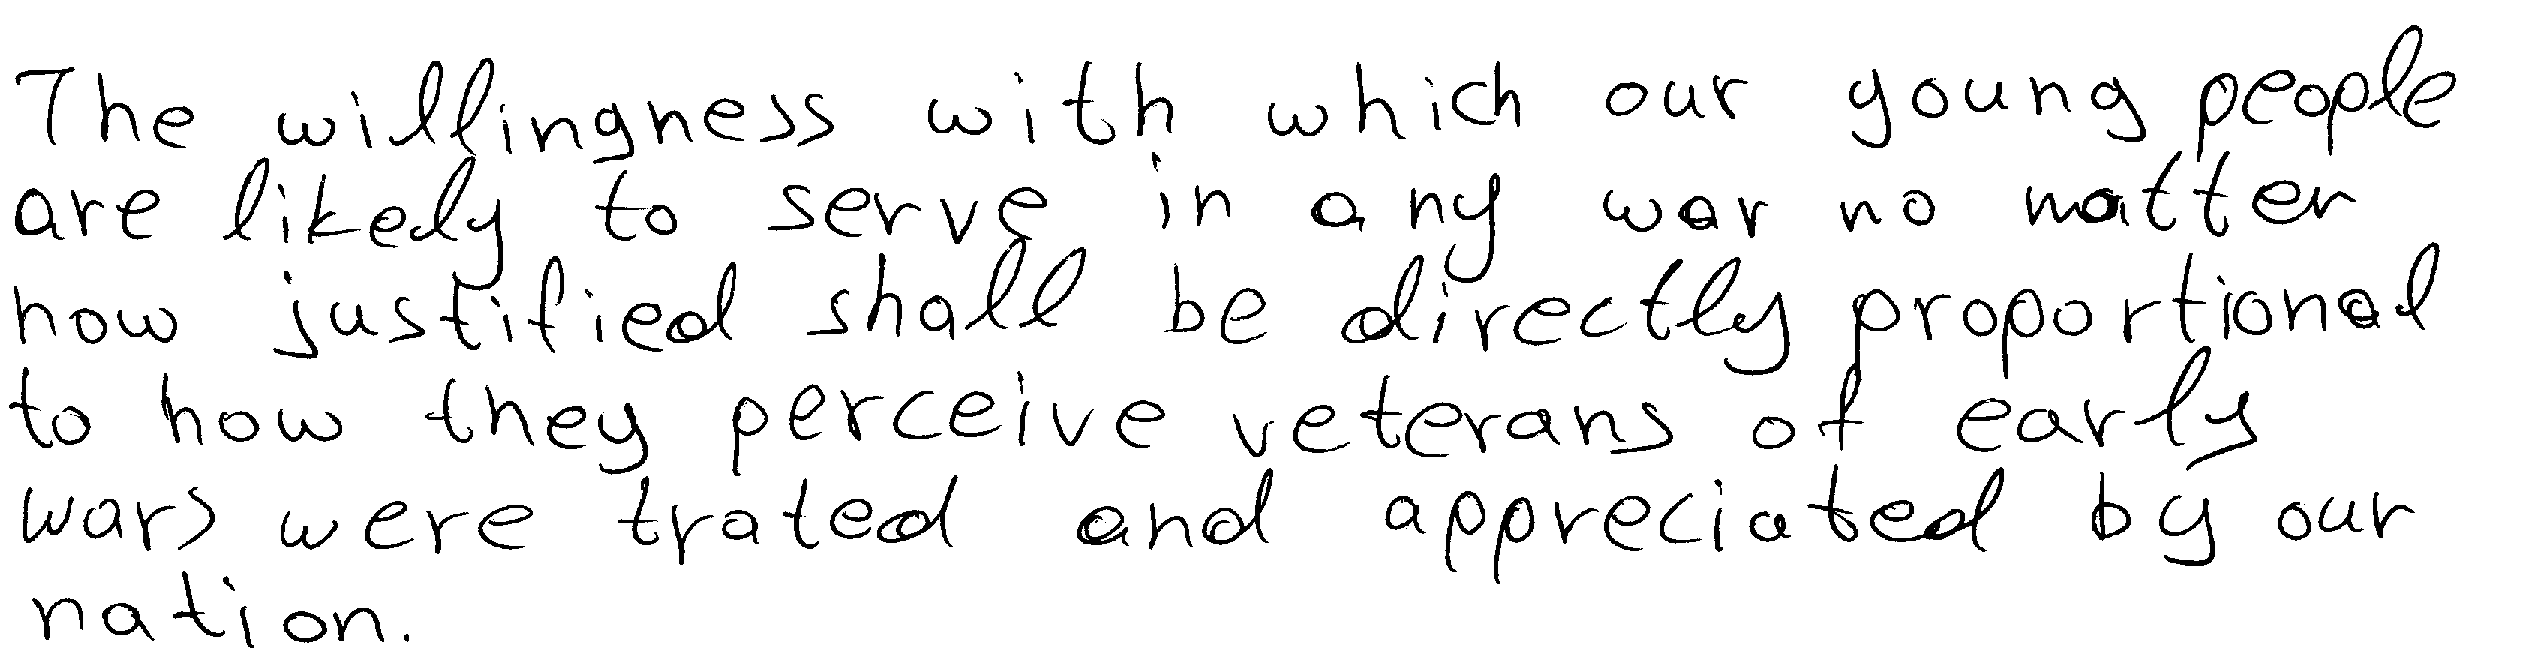 The willingness with which our young people
are likely to serve in any war no matter
how justified shall be directly proportional
to how they perceive veterans of early
wars were trated and appreciated by our
nation.